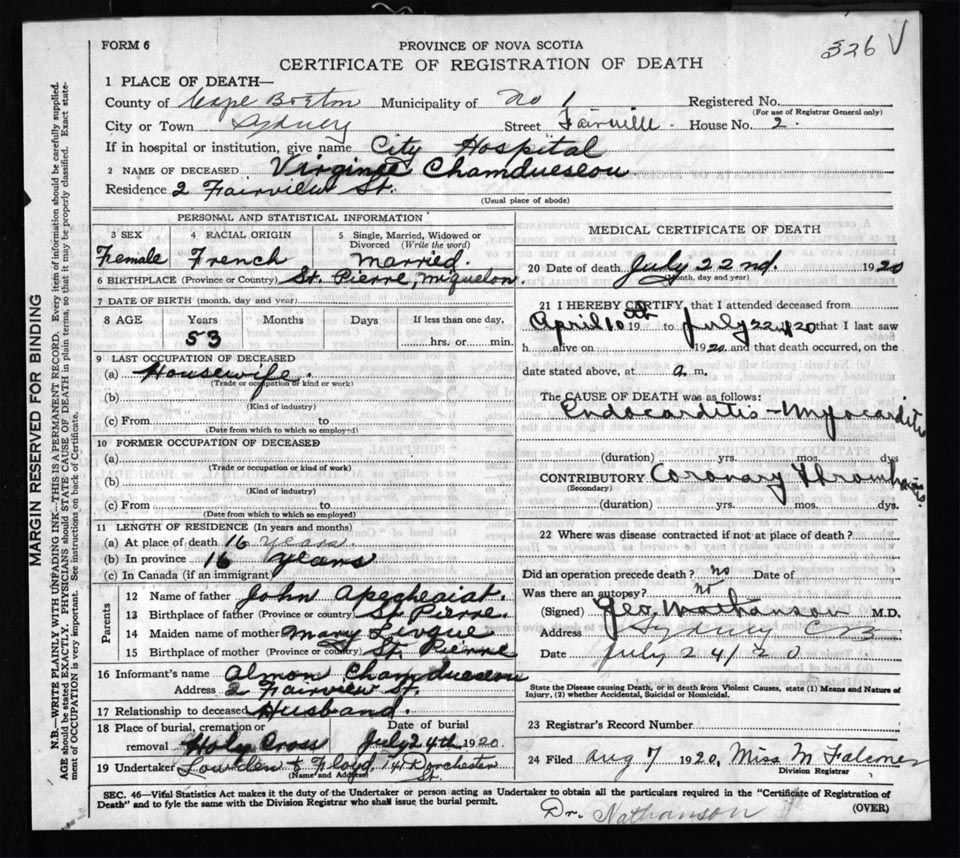 FORM 6
PROVINCE OF NOVA SCOTIA
326 V
CERTIFICATE OF REGISTRATION OF DEATH
1 PLACE OF DEATH—
County of Cape Breton Municipality of No 1 Registered No.
(For use of Registrar General only)
City or Town Sydney Street Fairville - House No. 2.
If in hospital or institution, give name City Hospital
2 NAME OF DECEASED Virginie Chamdueseou
Residence 2 Fairview St.
(Usual place of abode)
PERSONAL AND STATISTICAL INFORMATION
3 SEX 4 RACIAL ORIGIN 5 Single, Married, Widowed or Divorced (Write the word)
Female French Married.
6 BIRTHPLACE (Province or Country) St. Pierre, Miquelon.
7 DATE OF BIRTH (month, day and year)
8 AGE Years Months Days If less than one day,
53 hrs. or min.
9 LAST OCCUPATION OF DECEASED
(a) Housewife.
(Trade or occupation or kind or work)
(b)
(Kind of industry)
(c) From to
(Date from which to which so employed)
10 FORMER OCCUPATION OF DECEASED
(a)
(Trade or occupation or kind of work)
(b)
(Kind of industry)
(c) From to
(Date from which to which so employed)
11 LENGTH OF RESIDENCE (In years and months)
(a) At place of death 16 years.
(b) In province 16 years
(c) In Canada (if an immigrant)
Parents
12 Name of father John Apecheaiat.
13 Birthplace of father (Province or country) St Pierre.
14 Maiden name of mother Mary Livgue
15 Birthplace of mother (Province or country) St. Pierre
16 Informant's name Almon Chamdueseou
Address 2 Fairview St.
17 Relationship to deceased Husband.
18 Place of burial, cremation or Date of burial
removal Holy Cross July 24th 1920.
19 Undertaker Lowden & Floyd, 141 Dorchester
(Name and Address) St.
MEDICAL CERTIFICATE OF DEATH
20 Date of death July 22nd. 1920
(Month, day and year)
21 I HEREBY CERTIFY, that I attended deceased from
April 10th 19 to July 22nd 20 that I last saw
h alive on 1920 and that death occurred, on the
date stated above, at a. m.
The CAUSE OF DEATH was as follows:
Endocarditis - Myocarditis
(duration) yrs. mos. dys
CONTRIBUTORY Coronary Thrombosis
(Secondary)
(duration) yrs. mos. dys.
22 Where was disease contracted if not at place of death?
Did an operation precede death? no Date of
Was there an autopsy? no
(Signed) Geo Nathanson M.D.
Address Sydney CB
Date July 24/20
State the Disease causing Death, or in death from Violent Causes, state (1) Means and Nature of
Injury, (2) whether Accidental, Suicidal or Homicidal.
23 Registrar's Record Number
24 Filed Aug 7 1920, Miss M Falconer
Division Registrar
SEC. 46—Vital Statistics Act makes it the duty of the Undertaker or person acting as Undertaker to obtain all the particulars required in the "Certificate of Registration of
Death" and to fyle the same with the Division Registrar who shall issue the burial permit.
(OVER)
Dr. Nathanson
MARGIN RESERVED FOR BINDING
N.B.—WRITE PLAINLY WITH UNFADING INK—THIS IS A PERMANENT RECORD. Every item of information should be carefully supplied.
AGE should be stated EXACTLY. PHYSICIANS should STATE CAUSE OF DEATH in plain terms, so that it may be properly classified. Exact state-
ment of OCCUPATION is very important. See instructions on back of Certificate.